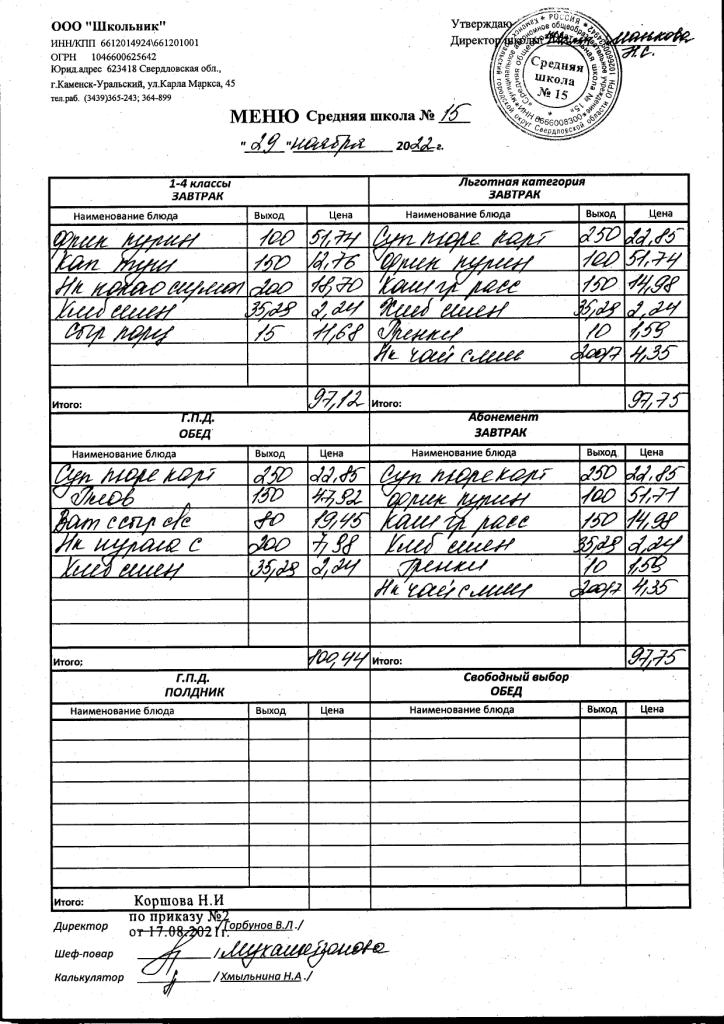 ООО "Школьник"
ИНН/КПП 6612014924\661201001
ОГРН 1046600625642
Юрид.адрес 623418 Свердловская обл.,
г.Каменск-Уральский, ул.Карла Маркса, 45
тел.раб. (3439)365-243; 364-899
Утверждаю
Директор школы
Н.С.
Средняя
школа
№ 15
МЕНЮ Средняя школа № 15
"29" ноября 2022 г.
1-4 классы
ЗАВТРАК
Наименование блюда Выход Цена
Фрик курин 100 51,74
Кап туш 150 12,76
Нк какао сгущ 200 18,70
Хлеб смен 35,28 2,24
Сыр порц 15 11,68
Итого: 97,12
Льготная категория
ЗАВТРАК
Наименование блюда Выход Цена
Суп пюре карт 250 22,85
Фрик курин 100 51,74
Каш гр расс 150 14,98
Хлеб смен 35,28 2,24
Гренки 10 1,59
Нк чай с лим 200/7 4,35
Итого: 97,75
Г.П.Д.
ОБЕД
Наименование блюда Выход Цена
Суп пюре карт 250 22,85
Плов 150 47,92
Ват с сыр св 80 19,45
Нк курага с 200 7,98
Хлеб смен 35,28 2,24
Итого: 100,44
Абонемент
ЗАВТРАК
Наименование блюда Выход Цена
Суп пюре карт 250 22,85
Фрик курин 100 51,71
Каш гр расс 150 14,98
Хлеб смен 35,28 2,24
Гренки 10 1,59
Нк чай с лим 200/7 4,35
Итого: 97,75
Г.П.Д.
ПОЛДНИК
Наименование блюда Выход Цена
Итого:
Свободный выбор
ОБЕД
Наименование блюда Выход Цена
Коршова Н.И
по приказу №2
от 17.08.2021г.
Директор /Горбунов В.Л./
Шеф-повар /
Калькулятор /Хмыльнина Н.А./